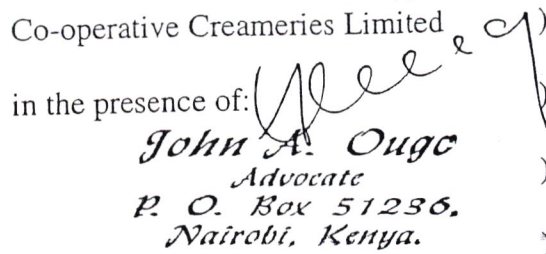 Co-operative Creameries Limited )
in the presence of: )
John A. Ougo
Advocate )
P. O. Box 51236,
Nairobi, Kenya.